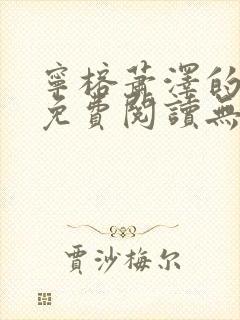 寧榕蕭澤的
免費閱讀無
賈沙梅尔